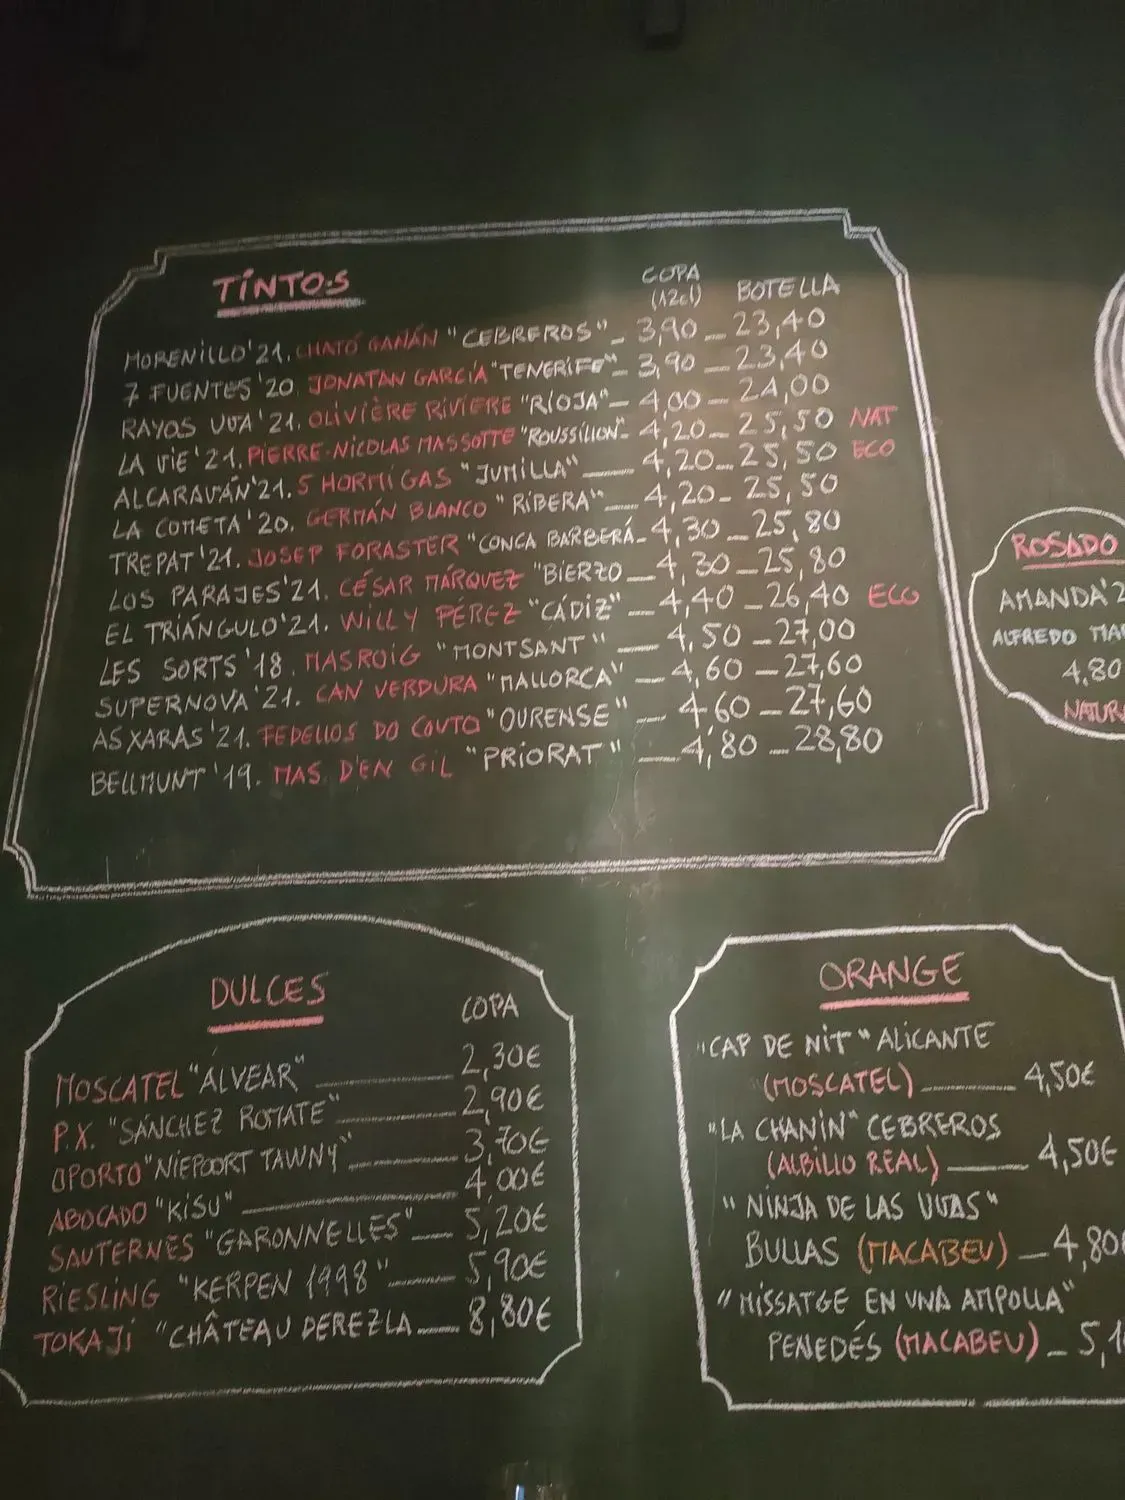 TINTOS
COPA
(12cl)
BOTELLA
MORENILLO'21. CHATÓ GAÑÁN "CEBREROS" _ 3,90 _ 23,40
7 FUENTES '20. JONATAN GARCÍA "TENERIFE" _ 3,90 _ 23,40
RAYOS UVA '21. OLIVIÈRE RIVIERE "RIOJA" _ 4,00 _ 24,00
LA VIE '21. PIERRE-NICOLAS MASSOTTE "ROUSSILLON" _ 4,20 _ 25,50 NAT
ALCARAVÁN'21. 5 HORMIGAS "JUMILLA" _ 4,20 _ 25,50 ECO
LA COMETA '20. GERMÁN BLANCO "RIBERA" _ 4,20 _ 25,50
TREPAT '21. JOSEP FORASTER "CONCA BARBERÁ _ 4,30 _ 25,80
LOS PARAJES'21. CÉSAR MÁRQUEZ "BIERZO _ 4,30 _ 25,80
EL TRIÁNGULO'21. WILLY PÉREZ "CÁDIZ" _ 4,40 _ 26,40 ECO
LES SORTS '18. MASROIG "MONTSANT" _ 4,50 _ 27,00
SUPERNOVA '21. CAN VERDURA "MALLORCA" _ 4,60 _ 27,60
AS XARAS '21. FEDELLOS DO COUTO "OURENSE" _ 4,60 _ 27,60
BELLMUNT '19. MAS D'EN GIL "PRIORAT" _ 4,80 _ 28,80
ROSADO
AMANDA'2
ALFREDO MA
4,80
NATUR
DULCES
COPA
MOSCATEL "ALVEAR" _ 2,30€
P.X. "SÁNCHEZ ROMATE" _ 2,90€
OPORTO "NIEPOORT TAWNY" _ 3,70€
ABOCADO "KISU" _ 4,00€
SAUTERNES "GARONNELLES" _ 5,20€
RIESLING "KERPEN 1998" _ 5,90€
TOKAJI "CHÂTEAU DEREZLA _ 8,80€
ORANGE
"CAP DE NIT" ALICANTE
(MOSCATEL) _ 4,50€
"LA CHANIN" CEBREROS
(ALBILLO REAL) _ 4,50€
"NINJA DE LAS UVAS"
BULLAS (MACABEU) _ 4,80€
"MISSATGE EN UNA AMPOLLA"
PENEDÉS (MACABEU) _ 5,1